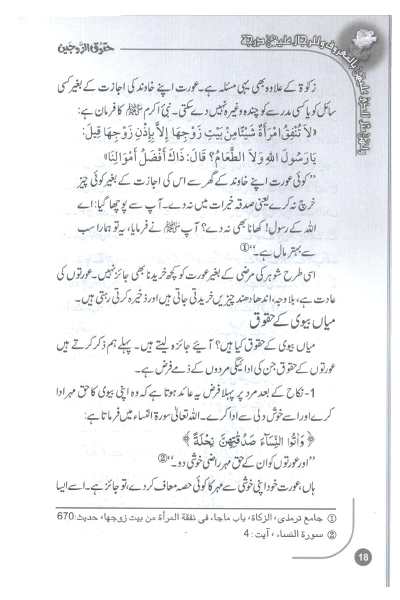 حقوق الزوجین
ولهن مثل الذی علیهن بالمعروف وللرجال علیهن درجة
زکوٰۃ کے علاوہ بھی یہی مسئلہ ہے۔ عورت اپنے خاوند کی اجازت کے بغیر کسی
سائل کو یا کسی مدرسے کو چندہ وغیرہ نہیں دے سکتی۔ نبیٔ اکرم ﷺ کا فرمان ہے:
«لَا تُنْفِقُ امْرَأَةٌ شَيْئًا مِنْ بَيْتِ زَوْجِهَا إِلَّا بِإِذْنِ زَوْجِهَا قِيلَ:
يَارَسُولَ اللهِ وَلَا الطَّعَامُ؟ قَالَ: ذَاكَ أَفْضَلُ أَمْوَالِنَا»
’’کوئی عورت اپنے خاوند کے گھر سے اس کی اجازت کے بغیر کوئی چیز
خرچ نہ کرے یعنی صدقہ خیرات میں نہ دے۔ آپ سے پوچھا گیا: اے
اللہ کے رسول! کھانا بھی نہ دے؟ آپ ﷺ نے فرمایا، یہ تو ہمارا سب
سے بہتر مال ہے۔‘‘①
اسی طرح شوہر کی مرضی کے بغیر عورت کو کچھ خریدنا بھی جائز نہیں۔ عورتوں کی
عادت ہے، بلاوجہ، اندھا دھند چیزیں خریدتی جاتی ہیں اور ذخیرہ کرتی رہتی ہیں۔
میاں بیوی کے حقوق
میاں بیوی کے حقوق کیا ہیں؟ آیئے جائزہ لیتے ہیں۔ پہلے ہم ذکر کرتے ہیں
عورتوں کے حقوق جن کی ادائیگی مردوں کے ذمے فرض ہے۔
1- نکاح کے بعد مرد پر پہلا فرض یہ عائد ہوتا ہے کہ وہ اپنی بیوی کا حق مہر ادا
کرے اور اسے خوش دلی سے ادا کرے۔ اللہ تعالیٰ سورۃ النساء میں فرماتا ہے:
﴿ وَاٰتُوا النِّسَآءَ صَدُقٰتِهِنَّ نِحْلَةً ﴾
’’اور عورتوں کو ان کے حق مہر راضی خوشی دو۔‘‘②
ہاں، عورت خود اپنی خوشی سے مہر کا کوئی حصہ معاف کر دے، تو جائز ہے۔ اسے ایسا
① جامع ترمذی، الزکاۃ، باب ماجاء فی نفقة المرأة من بیت زوجها، حدیث:670
② سورۃ النساء، آیت: 4
18